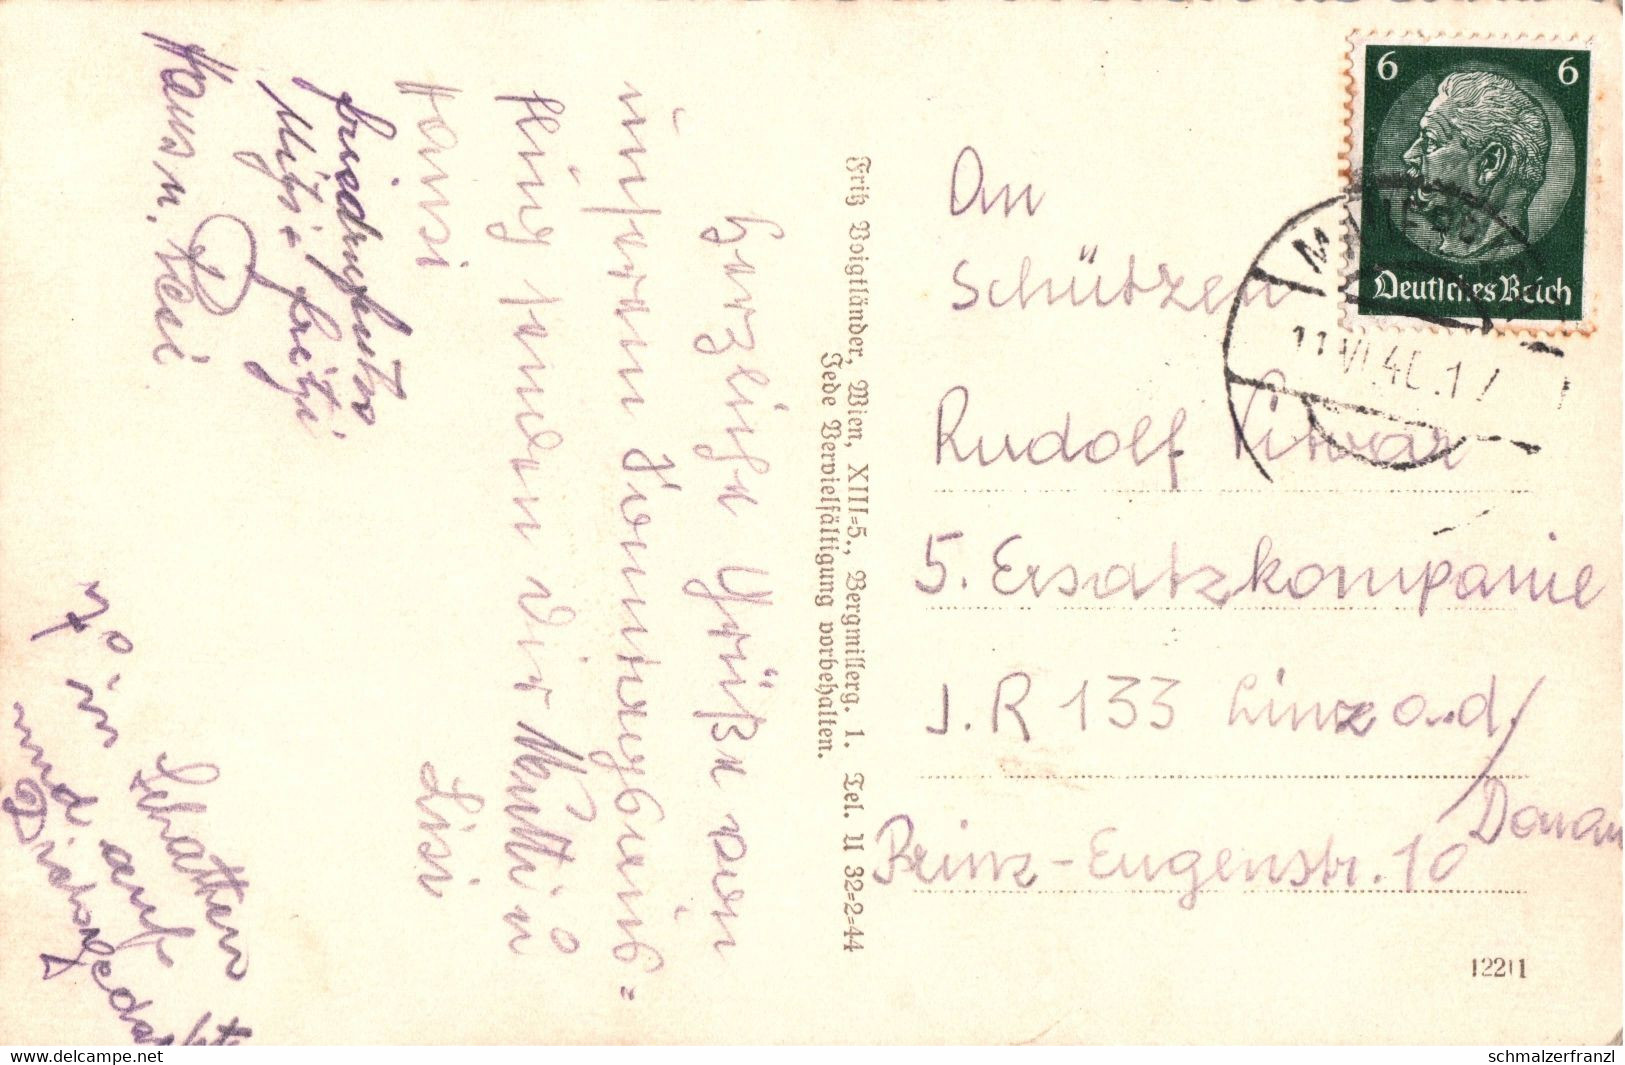 Herzliche Grüße von
unserem Sonntagsaus=
flug senden dir Mutti u
Hansi
Lisi
Mitzi + Fritzi
Hans u. Resi
in
Schatten
und auf
Fritz Voigtländer, Wien, XIII=5., Bergmillerg. 1. Tel. U 32=2=44
Jede Vervielfältigung vorbehalten.
6 6
Deutsches Reich
An
Schützen
Rudolf
5. Ersatzkompanie
J.R 133 Linz a.d/
Donau
Prinz-Eugenstr. 10
12211
delcampe.net
schmalzerfranzl